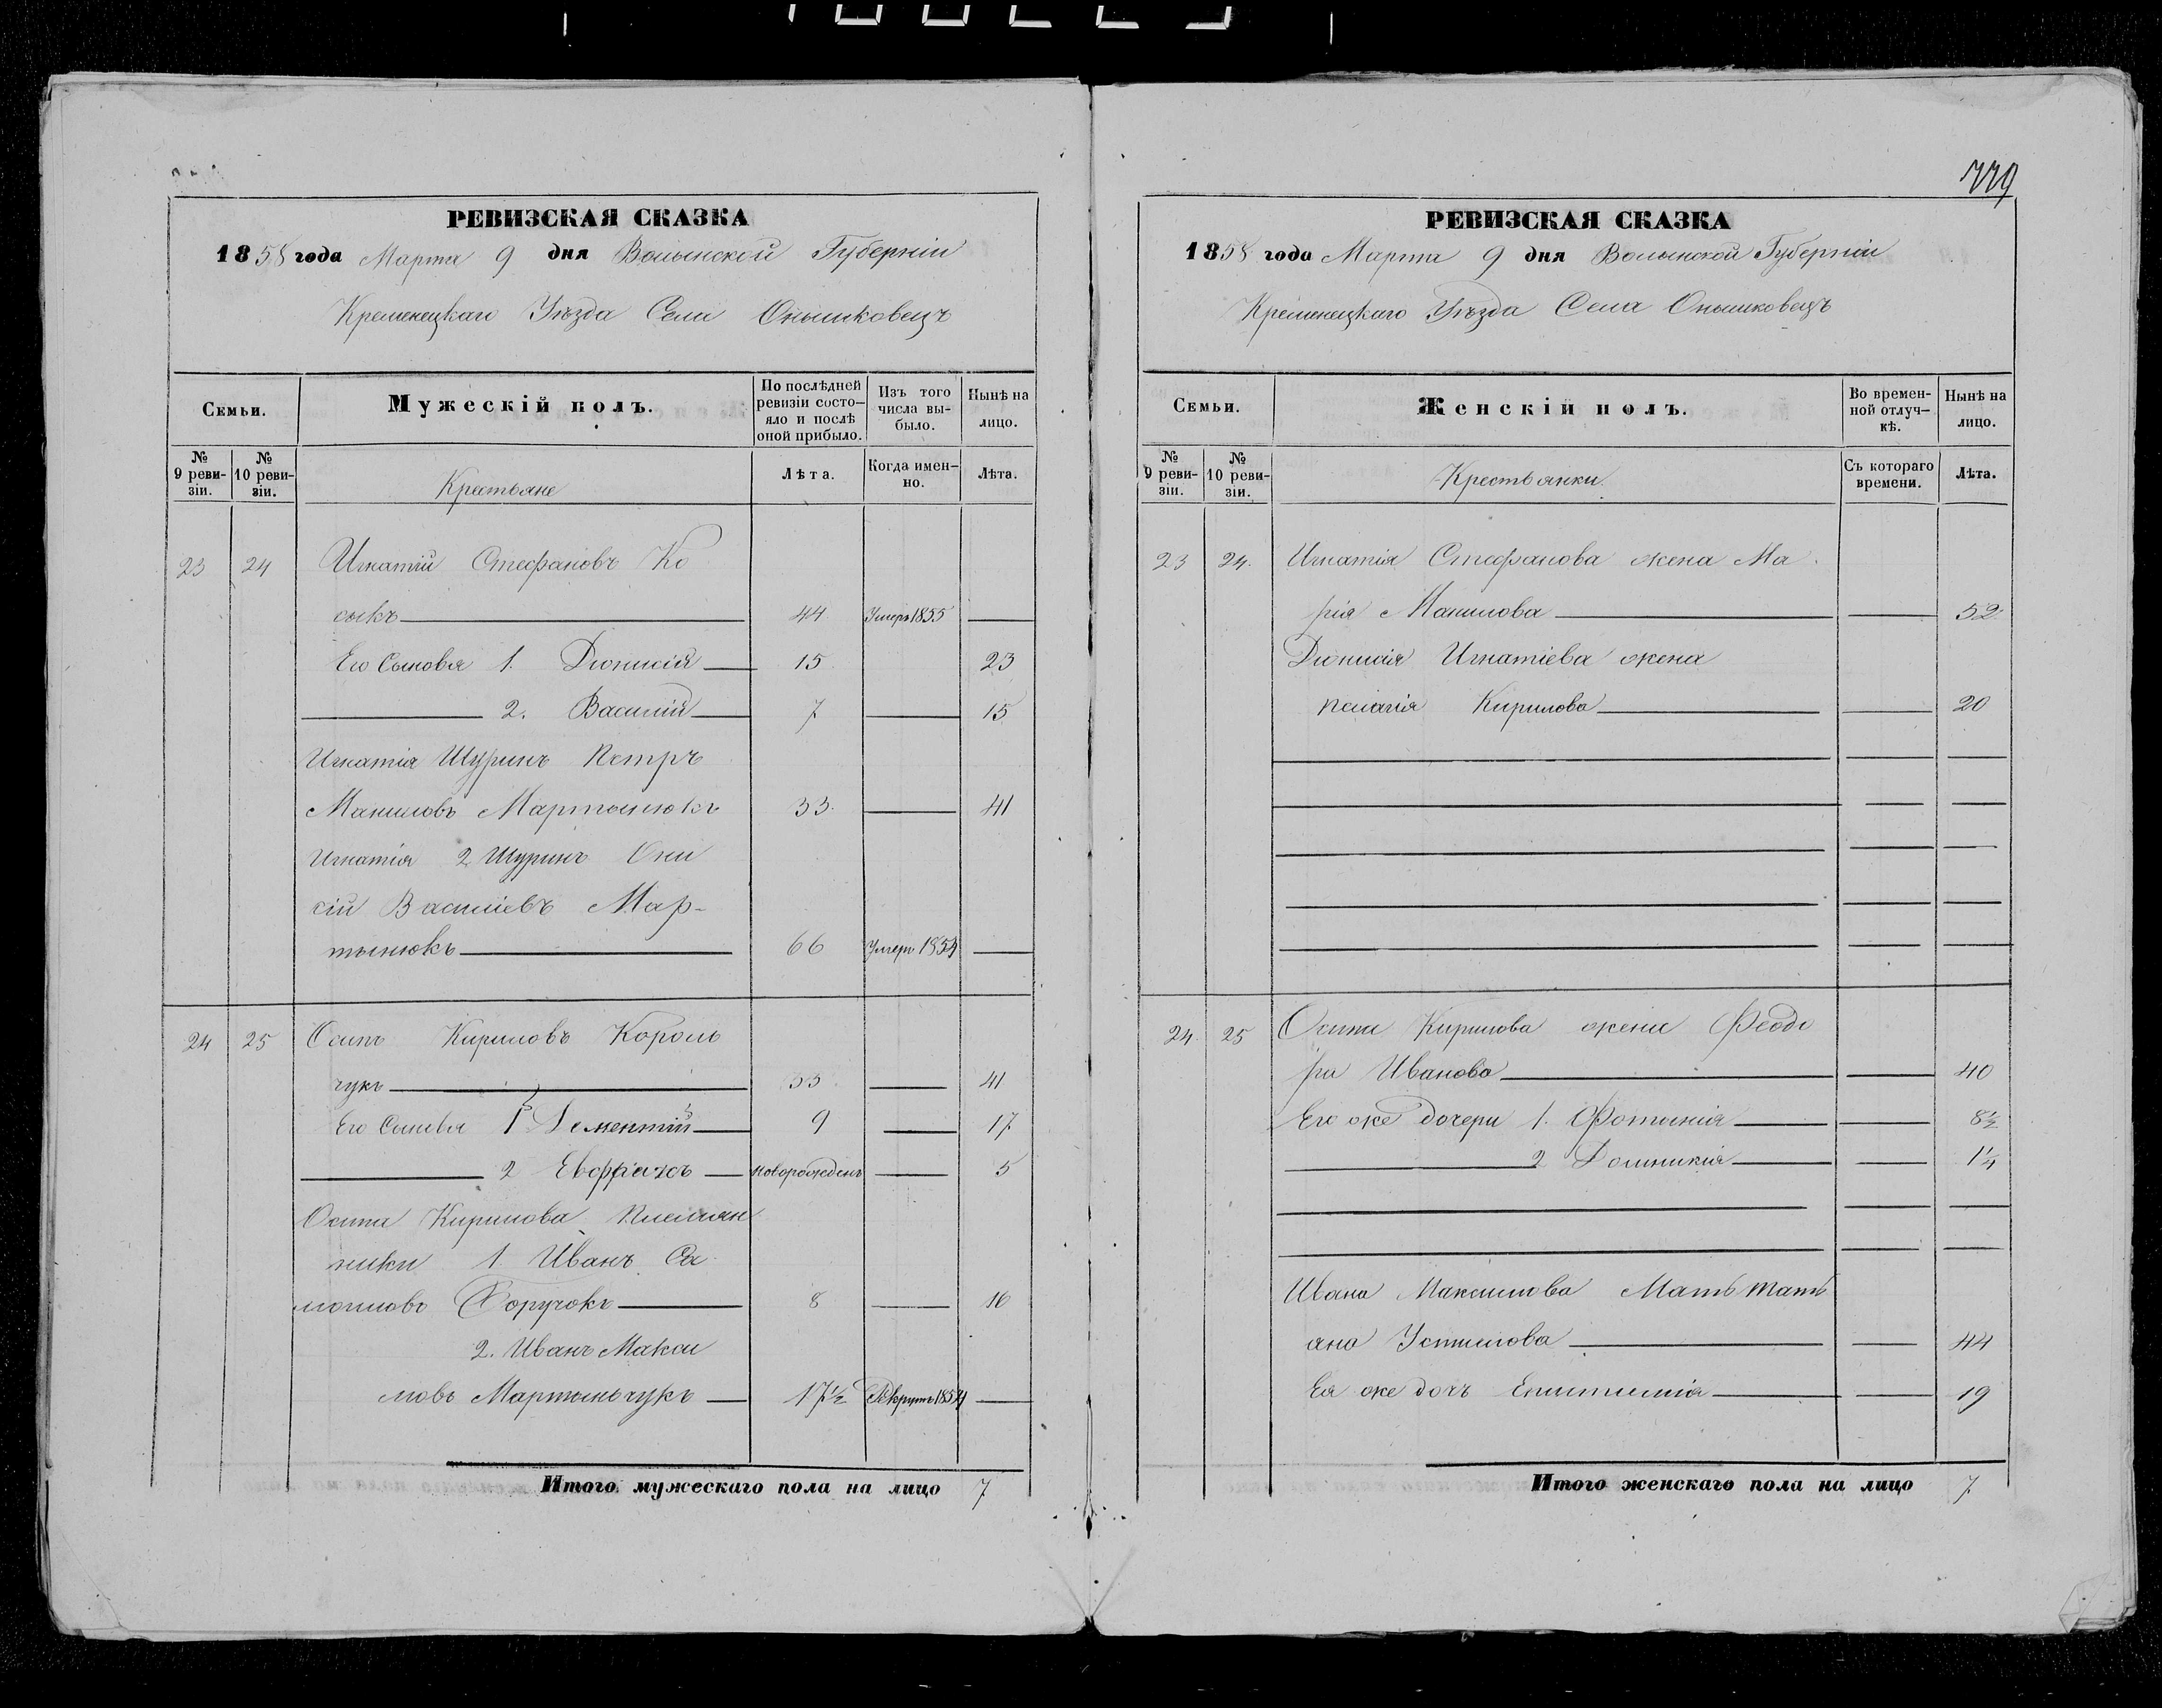 779
РЕВИЗСКАЯ СКАЗКА
1858 года Марта 9 дня Волынской Губерніи
Кременецкаго Уѣзда Села Онышковецъ
Семьи.
Мужескій полъ.
По послѣдней ревизіи состо-яло и послѣ оной прибыло.
Изъ того числа вы-было.
Нынѣ на лицо.
№ 9 реви-зіи.
№ 10 реви-зіи.
Крестьяне
Лѣта.
Когда имен-но.
Лѣта.
23 24 Игнатій Стефановъ Ко
сыкъ 44 Умеръ 1855
Его Сыновья 1. Діонисій 15 23
2. Василий 7 15
Игнатія Шуринъ Петръ
Маниловъ Мартынюкъ 33 41
Игнатія 2 Шуринъ Они
сій Василіевъ Мар-
тынюкъ 66 Умеръ 1854
24 25 Осипъ Кириловъ Король
чукъ 33 41
Его Сыновья 1 Дементий 9 17
2 Евстафій новорожденъ 5
Осипа Кирилова племян
ники 1. Иванъ Са
мойловъ 8 16
2. Иванъ Макси
мовъ Мартынчукъ 17½ Рекрутъ 1854
Итого мужескаго пола на лицо 7
РЕВИЗСКАЯ СКАЗКА
1858 года Марта 9 дня Волынской Губерніи
Кременецкаго Уѣзда Села Онышковецъ
Семьи.
Женскій полъ.
Во времен-ной отлуч-кѣ.
Нынѣ на лицо.
№ 9 реви-зіи.
№ 10 реви-зіи.
Крестьянки
Съ котораго времени.
Лѣта.
23 24. Игнатія Стефанова жена Ма
рія Манилова 52
Діонисія Игнатіева жена
пелагія Кирилова 20
24. 25 Осипа Кирилова жена Феодо
ра Иванова 40
Его же дочери 1. Фотинія 8½
2 Домникія 1¼
Ивана Максимова Мать тать
яна Устимова 44
Ея же дочь Епистимія 19
Итого женскаго пола на лицо 7